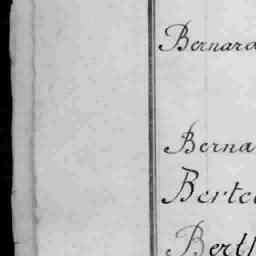 Bernard
Berna
Berte
Berth